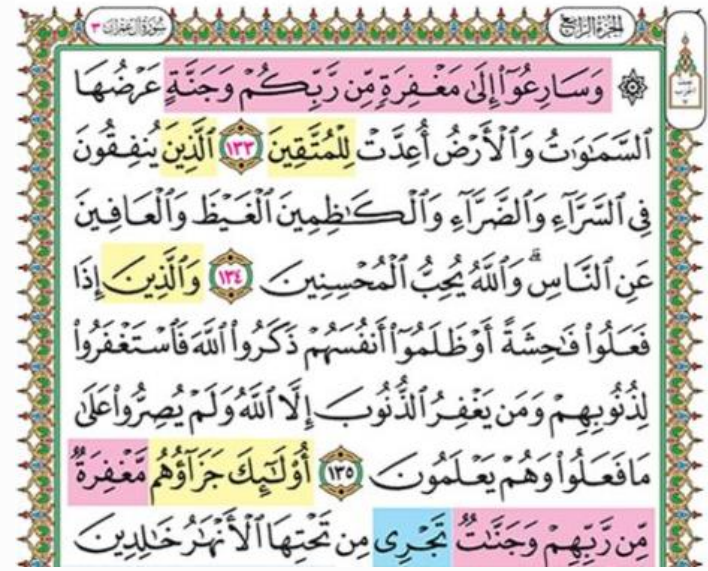 سُورَةُ آلِ عِمْرَانَ ٣
الجُزْءُ الرَّابِعُ
۞ وَسَارِعُوٓا۟ إِلَىٰ مَغْفِرَةٍ مِّن رَّبِّكُمْ وَجَنَّةٍ عَرْضُهَا
ٱلسَّمَٰوَٰتُ وَٱلْأَرْضُ أُعِدَّتْ لِلْمُتَّقِينَ ١٣٣ ٱلَّذِينَ يُنفِقُونَ
فِى ٱلسَّرَّآءِ وَٱلضَّرَّآءِ وَٱلْكَٰظِمِينَ ٱلْغَيْظَ وَٱلْعَافِينَ
عَنِ ٱلنَّاسِ ۗ وَٱللَّهُ يُحِبُّ ٱلْمُحْسِنِينَ ١٣٤ وَٱلَّذِينَ إِذَا
فَعَلُوا۟ فَٰحِشَةً أَوْ ظَلَمُوٓا۟ أَنفُسَهُمْ ذَكَرُوا۟ ٱللَّهَ فَٱسْتَغْفَرُوا۟
لِذُنُوبِهِمْ وَمَن يَغْفِرُ ٱلذُّنُوبَ إِلَّا ٱللَّهُ وَلَمْ يُصِرُّوا۟ عَلَىٰ
مَا فَعَلُوا۟ وَهُمْ يَعْلَمُونَ ١٣٥ أُو۟لَٰٓئِكَ جَزَآؤُهُم مَّغْفِرَةٌ
مِّن رَّبِّهِمْ وَجَنَّٰتٌ تَجْرِى مِن تَحْتِهَا ٱلْأَنْهَٰرُ خَٰلِدِينَ